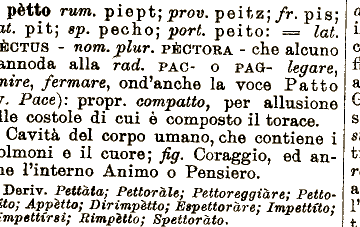 pètto rum. piept; prov. peitz; fr. pis;
pit; sp. pecho; port. peito: = lat.
PÈCTUS - nom. plur. PÈCTORA - che alcuno
annoda alla rad. PAC- o PAG- legare,
fermare, ond'anche la voce Patto
Pace): propr. compatto, per allusione
alle costole di cui è composto il torace.
Cavità del corpo umano, che contiene i
polmoni e il cuore; fig. Coraggio, ed an-
che l'interno Animo o Pensiero.
Deriv. Pettàta; Pettoràle; Pettoreggiàre; Petto-
Appètto; Dirimpètto; Espettoràre; Impettìto;
Impettìrsi; Rimpètto; Spettoràto.